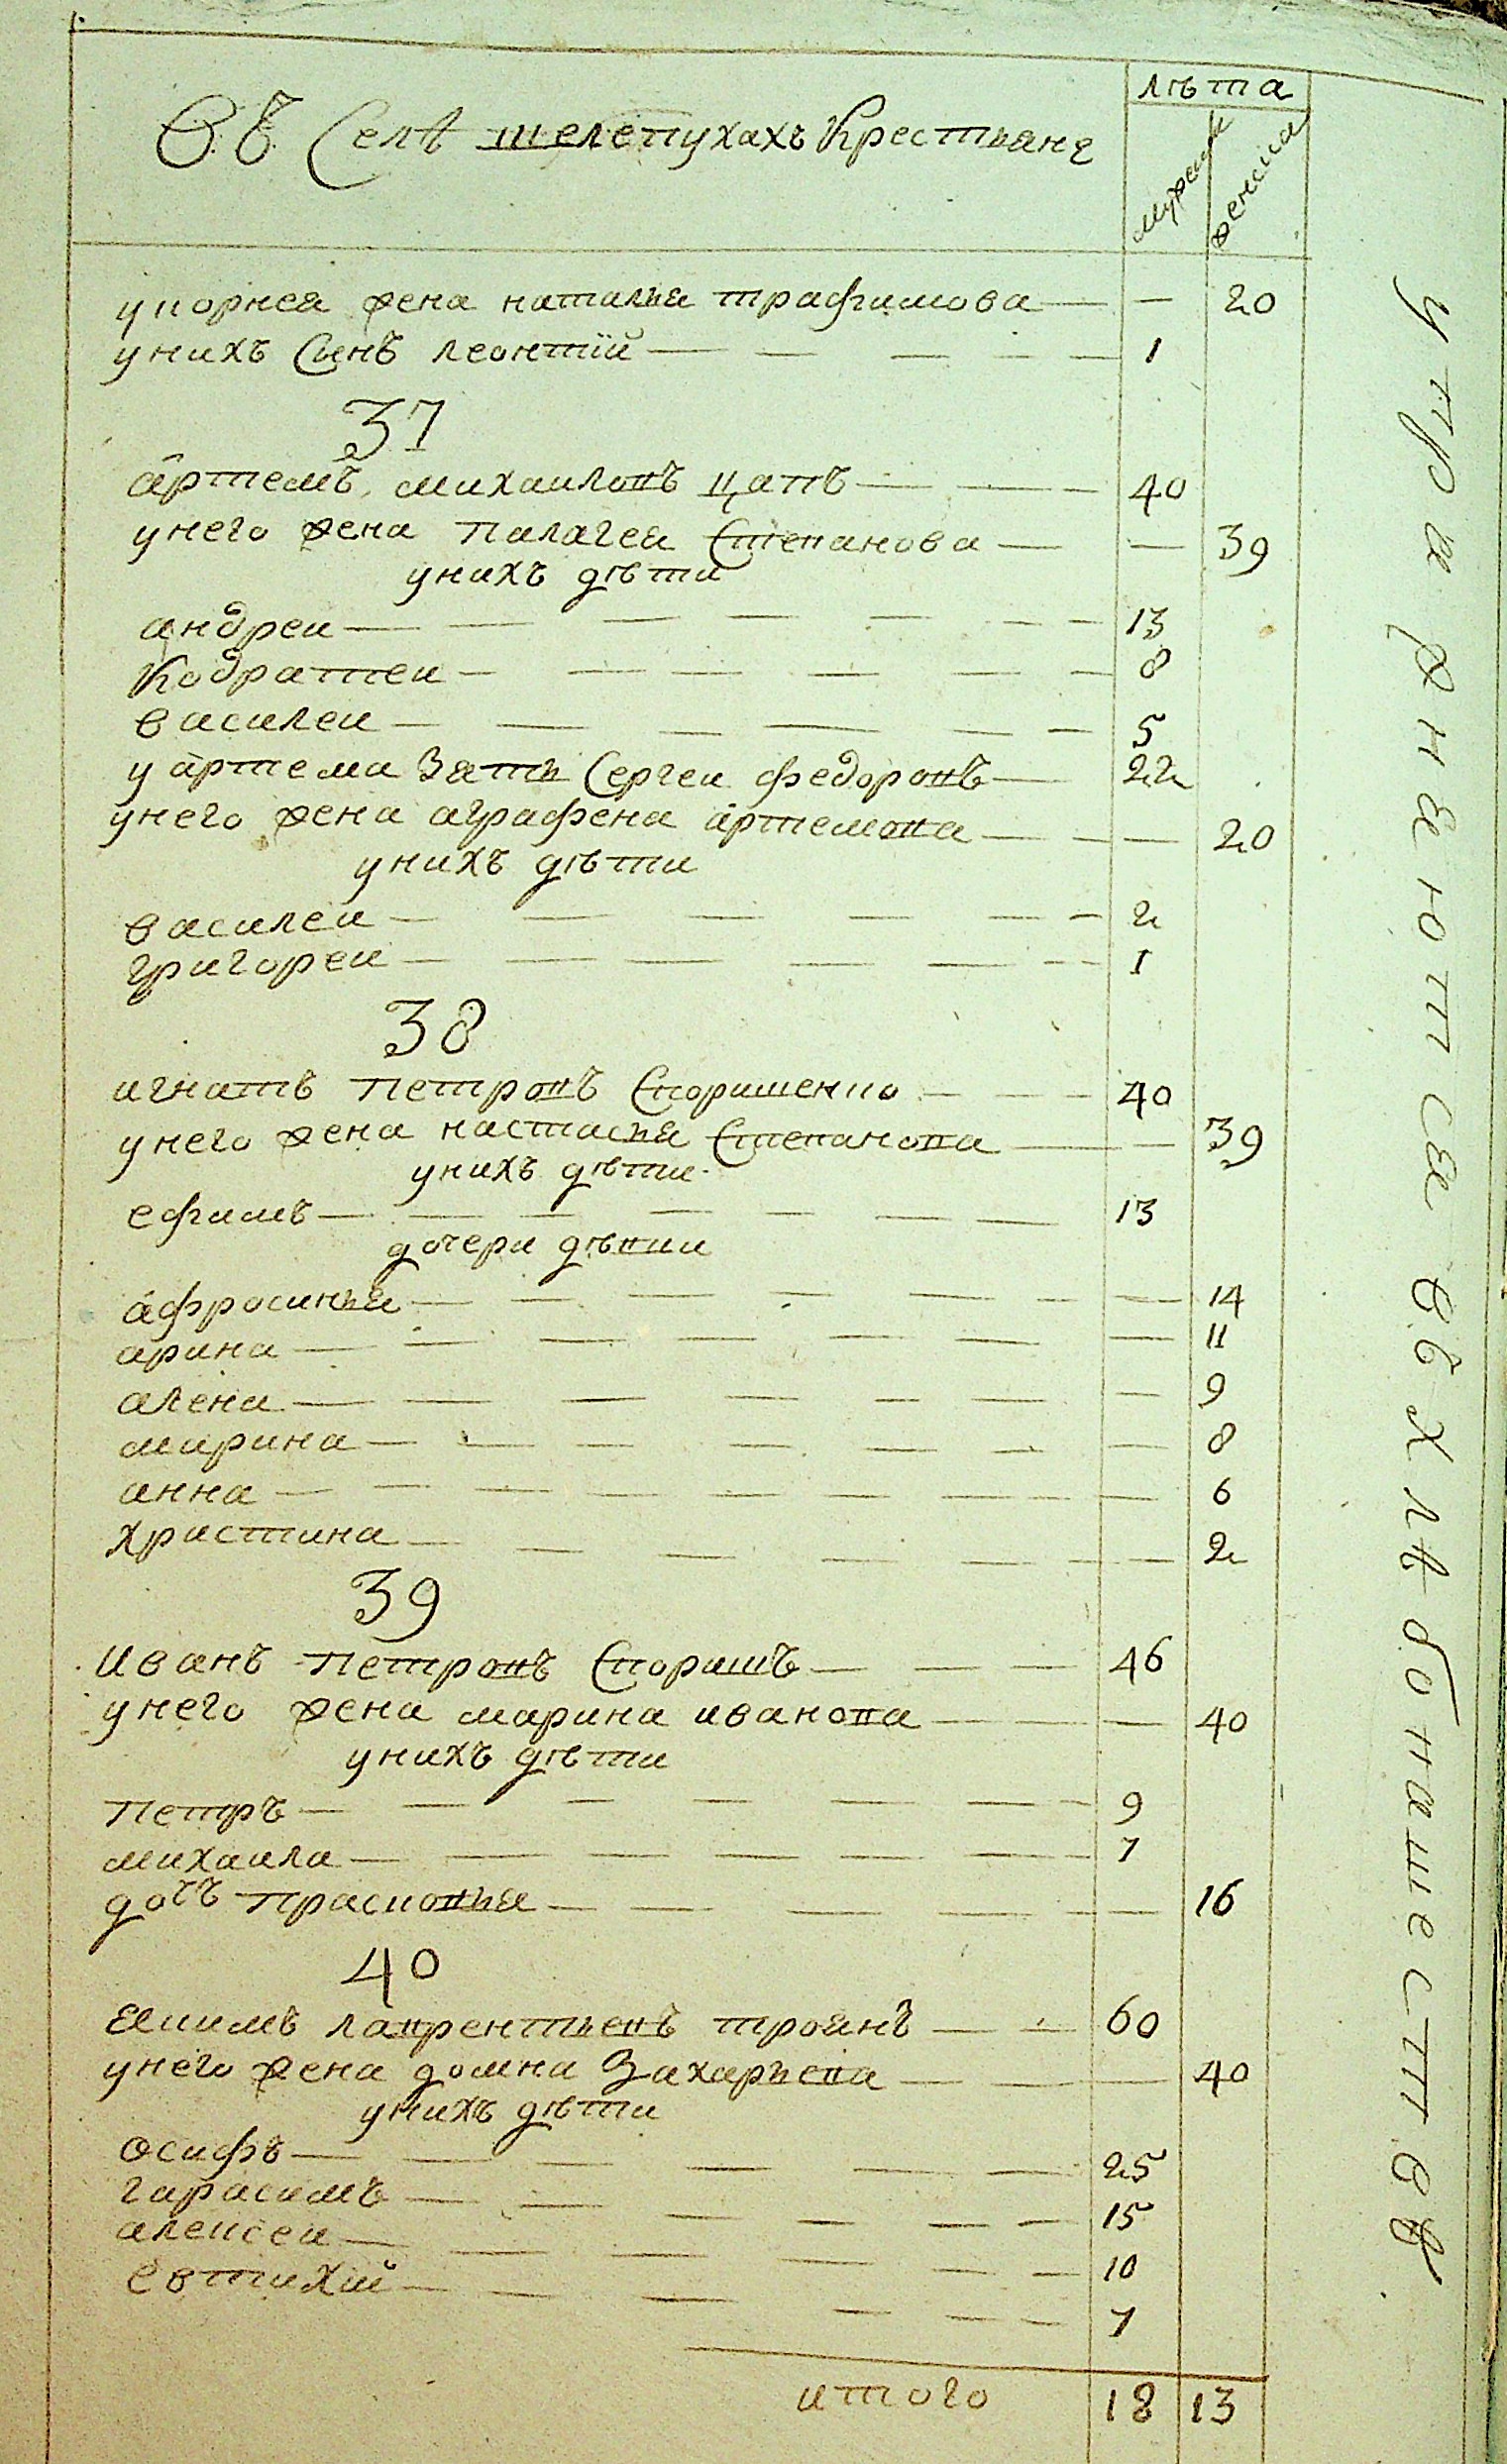 Въ Селѣ шелепухахъ Крестьяне
лѣта
мужеска
женска
у корнея жена наталья трафимова — — 20
у нихъ Синъ леонтій — 1
37
артемъ михаиловъ цапъ — 40
у него жена палагея Степанова — — 39
у нихъ дѣти
андреи — 13
Кодратеи — 8
василеи — 5
у артема Зять Сергеи федоровъ — 22
у него жена аграфена артемова — — 20
у нихъ дѣти
василеи — 2
григореи — 1
38
игнатъ петровъ Споришенко — 40
у него жена настасья Степанова — — 39
у нихъ дѣти
ефимъ — 13
дочери дѣвки
афросинья — — 14
арина — — 11
алена — — 9
марина — — 8
анна — — 6
христина — — 2
39
иванъ петровъ Споришъ — 46
у него жена марина иванова — — 40
у нихъ дѣти
петръ — 9
михаила — 7
дочъ прасковья — — 16
40
якимъ лаврентьевъ троянъ — 60
у него жена домна Захарьева — — 40
у нихъ дѣти
осифъ — 25
гарасимъ — 15
алексеи — 10
евтихій — 7
итого 18 13
упражняются въ хлѣбопашествѣ